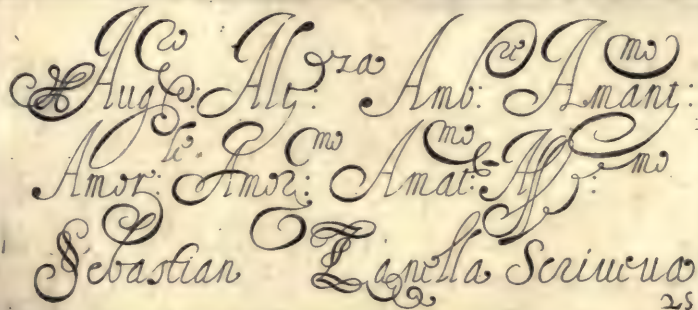 Aug:co Alt:za Amb:re Amant:mo
Amor:le. Amor:mo Amat:mo Aff:mo
Sebastian Zanella Scriueua
25